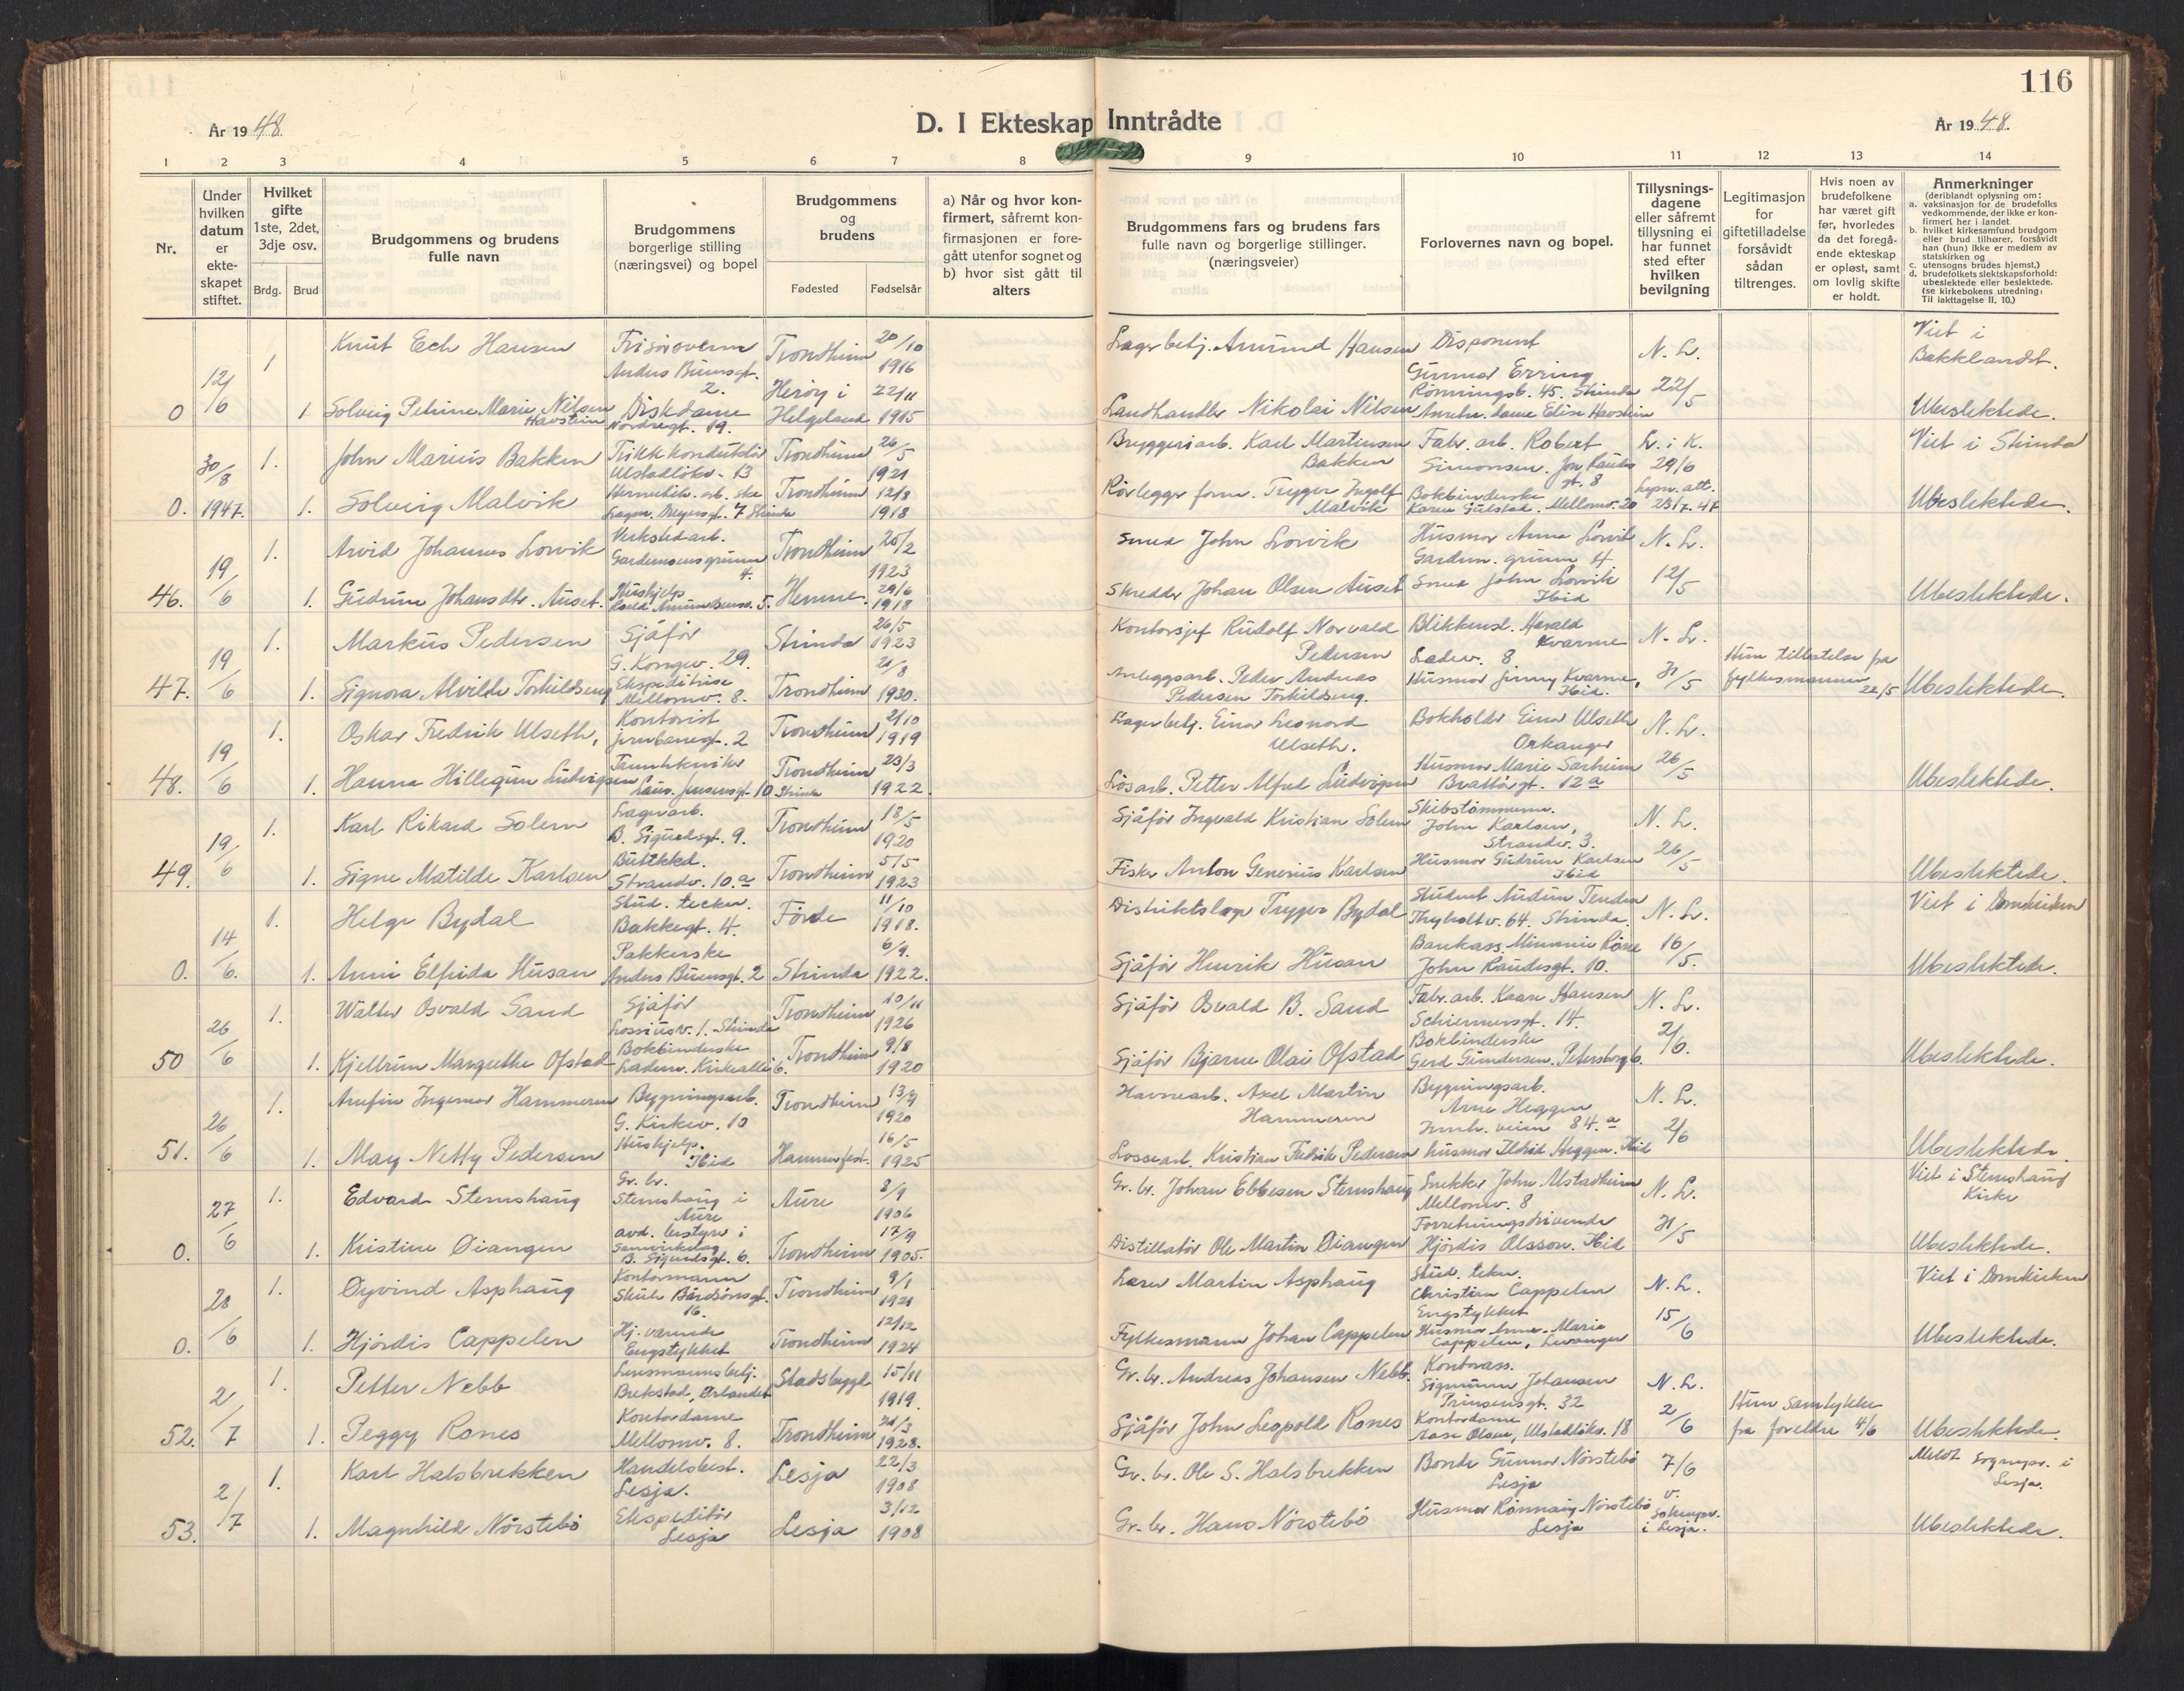 116
År 1948.
D. I Ekteskap Inntrådte
År 1948.
1 2 3 4 5 6 7 8 9 10 11 12 13 14
Nr.
Under hvilken datum er ekte-skapet stiftet.
Hvilket gifte 1ste, 2det, 3dje osv.
Brdg. Brud
Brudgommens og brudens fulle navn
Brudgommens borgerlige stilling (næringsvei) og bopel
Brudgommens og brudens
Fødested Fødselsår
a) Når og hvor kon-firmert, såfremt kon-firmasjonen er fore-gått utenfor sognet og b) hvor sist gått til alters
Brudgommens fars og brudens fars fulle navn og borgerlige stillinger. (næringsveier)
Forlovernes navn og bopel.
Tillysnings-dagene eller såfremt tillysning ei har funnet sted efter hvilken bevilgning
Legitimasjon for giftetilladelse forsåvidt sådan tiltrenges.
Hvis noen av brudefolkene har været gift før, hvorledes da det foregå-ende ekteskap er opløst, samt om lovlig skifte er holdt.
Anmerkninger
(deriblandt oplysning om:
a. vaksinasjon for de brudefolks vedkommende, der ikke er kon-firmert her i landet
b. hvilket kirkesamfund brudgom eller brud tilhører, forsåvidt han (hun) ikke er medlem av statskirken og
c. utensogns brudes hjemst.)
d. brudefolkets slektskapsforhold: ubeslektede eller beslektede. (se kirkebokens utredning: Til iakttagelse II. 10.)
0 12/6 1 Knut Ech Hansen Trondheim 20/10 1916 Lagerbetj. Amund Hansen Disponent Gunnar Erring N. L. Viet i Bakklandet.
Anders Buensgt. 2.
1. Solveig Petrine Marie Nilsen Havstein Diskdame Nordregt. 19. Herøy i Helgeland 22/11 1915 Landhandler Nikolai Nilsen 22/5 Ubeslektede.
0. 30/8 1947. 1. John Marius Bakken Trikkkonduktør Trondheim 26/5 1921 Bryggeriarb. Karl Martinsen Bakken Fabr. arb. Robert Simonsen. L. i K. 29/6 Viet i Strinda
1. Solveig Malvik Trondheim 12/8 1918 Rørlegger form. Trygve Ingolf Malvik Bokbinderske Mellomv. 20 23/7-47 Ubeslektede.
46. 19/6 1. Arvid Johannes Lorvik Verkstedarb. Trondheim 20/2 1923 Smed John Lorvik Husmor Anna Lorvik N. L.
1. Gudrun Johansdtr. Auset. Hushjelp Hemne. 29/6 1918 Skredder Johan Olsen Auset Smed John Lorvik Ibid 12/5 Ubeslektede.
47. 19/6 1. Markus Pedersen Sjåfør G. Kongev. 29. Strinda 26/5 1923 Kontorsjef Rudolf Norvald Pedersen Blikkensl. Harald Kvarme Ladev. 8 N. L.
1. Signora Alvilde Torkildseng Ekspeditrise Mellomv. 8. Trondheim 21/8 1930. Anleggsarb. Peder Andreas Pedersen Torkildseng. Husmor Jenny Kvarme, Ibid. 31/5 Hun tillatelse fra fylkesmannen 22/5 Ubeslektede.
48. 19/6 1. Oskar Fredrik Ulseth, Kontorist Jernbanegt. 2 Trondheim 2/10 1919 Lagerbetj. Einar Leonard Ulseth. Bokholder Einar Ulseth Orkanger N. L.
1. Hanna Hillegun Ludvigsen Trondheim 23/3 1922. Løsarb. Petter Alfred Ludvigsen Husmor Marie Sarheim Brattørgt. 12 a 26/5 Ubeslektede.
49. 19/6 1. Karl Rikard Solem Lagerarb. B. Sigurdsgt. 9. Trondheim 18/5 1920 Sjåfør Ingvald Kristian Solem Skibstømmerm. John Karlsen, Strandv. 3. N. L.
1. Signe Matilde Karlsen Butikkd. Strandv. 10. a Trondheim 5/5 1923 Fisker Anton Generius Karlsen Husmor Gudrun Karlsen Ibid 26/5 Ubeslektede.
0. 14/6. 1. Helge Bydal Stud. techn. Bakkegt. 4. Førde 11/10 1918. Distriktslege Trygve Bydal Student Audun Tenden Thyholtv. 64. Strinda. N. L. Viet i Domkirken
1. Anni Elfrida Husan Pakkerske Anders Buensgt. 2 Strinda 6/9. 1922. Sjåfør Henrik Husan Bankass. Minnie Røne John Raudesgt. 10. 10/5. Ubeslektede.
50 26/6 1. Walter Osvald Sand Sjåfør Lossiusv. 1. Strinda Trondheim 10/11 1926 Sjåfør Osvald B. Sand Fabr. arb. Kaare Hansen Schiermersgt. 14. N. L.
1. Kjellrun Margrethe Ofstad Bokbinderske Ladem. Kirkeallé 6. Trondheim 9/8 1920 Sjåfør Bjarne Olai Ofstad Bokbinderske Gerd Gundersen. 2/6. Ubeslektede.
51. 26/6 1. Arnfin Ingemar Hammeren Bygningsarb. G. Kirkev. 10 Trondheim 13/9 1920 Havnearb. Axel Martin Hammeren Bygningsarb. Arne Heggen 84. a N. L.
1. May Netty Pedersen Hushjelp. Ibid Hammerfest. 16/5 1925 Lossearb. Kristian Fredrik Pedersen husmor Ildrid Heggen. Ibid 2/6 Ubeslektede.
0. 27/6 1. Edvard Stemshaug Gr. br. Stemshaug i Aure Aure 8/9 1906 Gr. br. Johan Ebbesen Stemshaug Snekker John Alstadheim Mellomv. 8 N. L. Viet i Stemshaug Kirke
1. Kristine Øiangen avd. bestyrer i Samvirkelag B. Sigurdsgt. 6. Trondheim 17/9 1905. Distillatør Ole Martin Øiangen Forretningsdrivende Hjørdis Olsson. Ibid 31/5 Ubeslektede.
0. 28/6 1. Øyvind Asphaug Kontormann Skule Bårdsønsgt. 16. Trondheim 9/1 1921 Lærer Martin Asphaug Stud. tekn. Christian Cappelen Engstykket N. L. Viet i Domkirken
1. Hjørdis Cappelen Hj. værende Engstykket Trondheim 12/12 1924 Fylkesmann Johan Cappelen Husmor Anne-Marie Cappelen, Levanger 15/6 Ubeslektede.
52. 2/7 1. Petter Nebb Lensmannsbetj. Brekstad, Ørlandet Stadsbygd 15/11 1919. Gr. br. Andreas Johansen Nebb. Kontorass. Sigmunn Johansen Prinsensgt. 32 N. L.
1. Peggy Rones Kontordame Mellomv. 8. Trondheim 21/3 1928. Sjåfør John Leopold Rones Kontordame Aase Olsen, Ulstadløkv. 18 2/6 Hun samtykke fra foreldre 4/6 Ubeslektede.
53. 2/7 1. Karl Halsbrekken Handelsbest. Lesja. Lesja 22/3 1908 Gr. br. Ole S. Halsbrekken Bonde Gunnar Nørstebø Lesja 7/6 Meldt Sognepr. i Lesja.
1. Magnhild Nørstebø Ekspeditør Lesja Lesja 3/12 1908 Gr. br. Hans Nørstebø Husmor Rønnaug Nørstebø Lesja v. Soknepr. i Lesja. Ubeslektede.